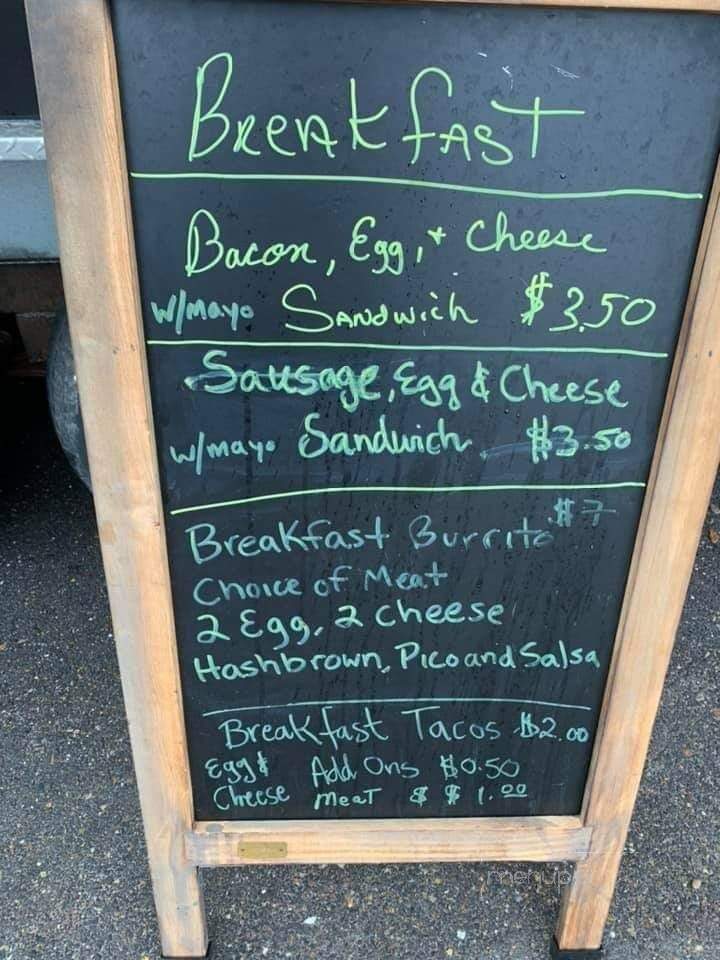 Breakfast
Bacon, Egg, + Cheese
w/mayo Sandwich $3.50
Sausage, Egg & Cheese
w/mayo Sandwich $3.50
Breakfast Burrito $7
Choice of Meat
2 Egg, 2 Cheese
Hashbrown, Pico and Salsa
Breakfast Tacos $2.00
Egg & Add Ons $0.50
Cheese Meat & $1.00
menupix